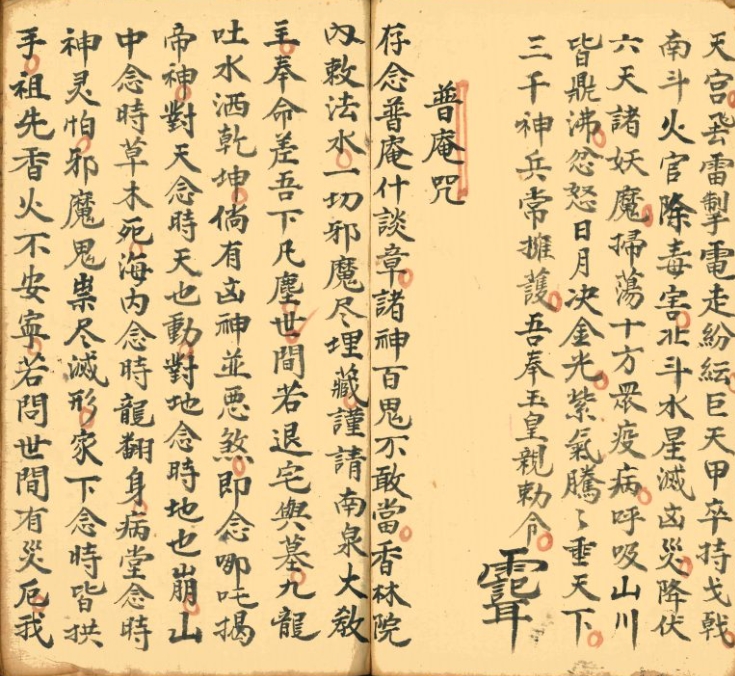 天宮飛雷掣電走紛紜巨天甲卒持戈戟
南斗火官除毒害北斗水星滅凶災降伏
六天諸妖魔掃蕩十方眾疫病呼吸山川
皆鼎沸忿怒日月决金光紫氣騰〻垂天下
三千神兵常擁護吾奉玉皇親勅令
普庵咒
存念普庵什談章諸神百鬼不敢當香林院
内敕法水一切邪魔尽埋藏謹請南泉大教
主奉命差吾下凡塵世間若退宅與墓九龍
吐水洒乾坤倘有凶神並悪煞即念哪吒揭
帝神對天念時天也動對地念時地也崩山
中念時草木死海内念時龍翻身病堂念時
神灵怕邪魔鬼祟尽滅形家下念時皆拱
手祖先香火不安寧若問世間有災厄我